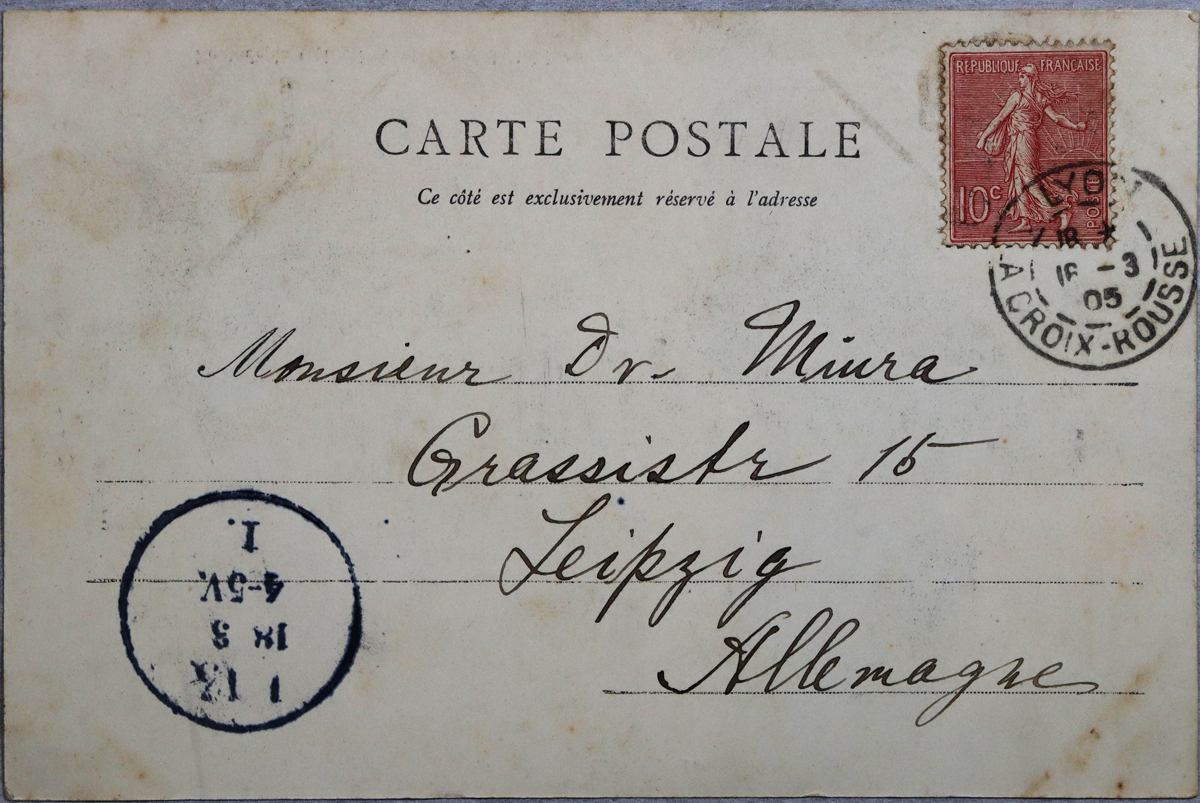 RÉPUBLIQUE FRANÇAISE
10c
POSTE
CARTE POSTALE
Ce côté est exclusivement réservé à l'adresse
LYON
16 -3
05
LA CROIX-ROUSSE
Monsieur Dr. Miura
Grassistr 15
Leipzig
Allemagne
18 3
4-5V.
I.